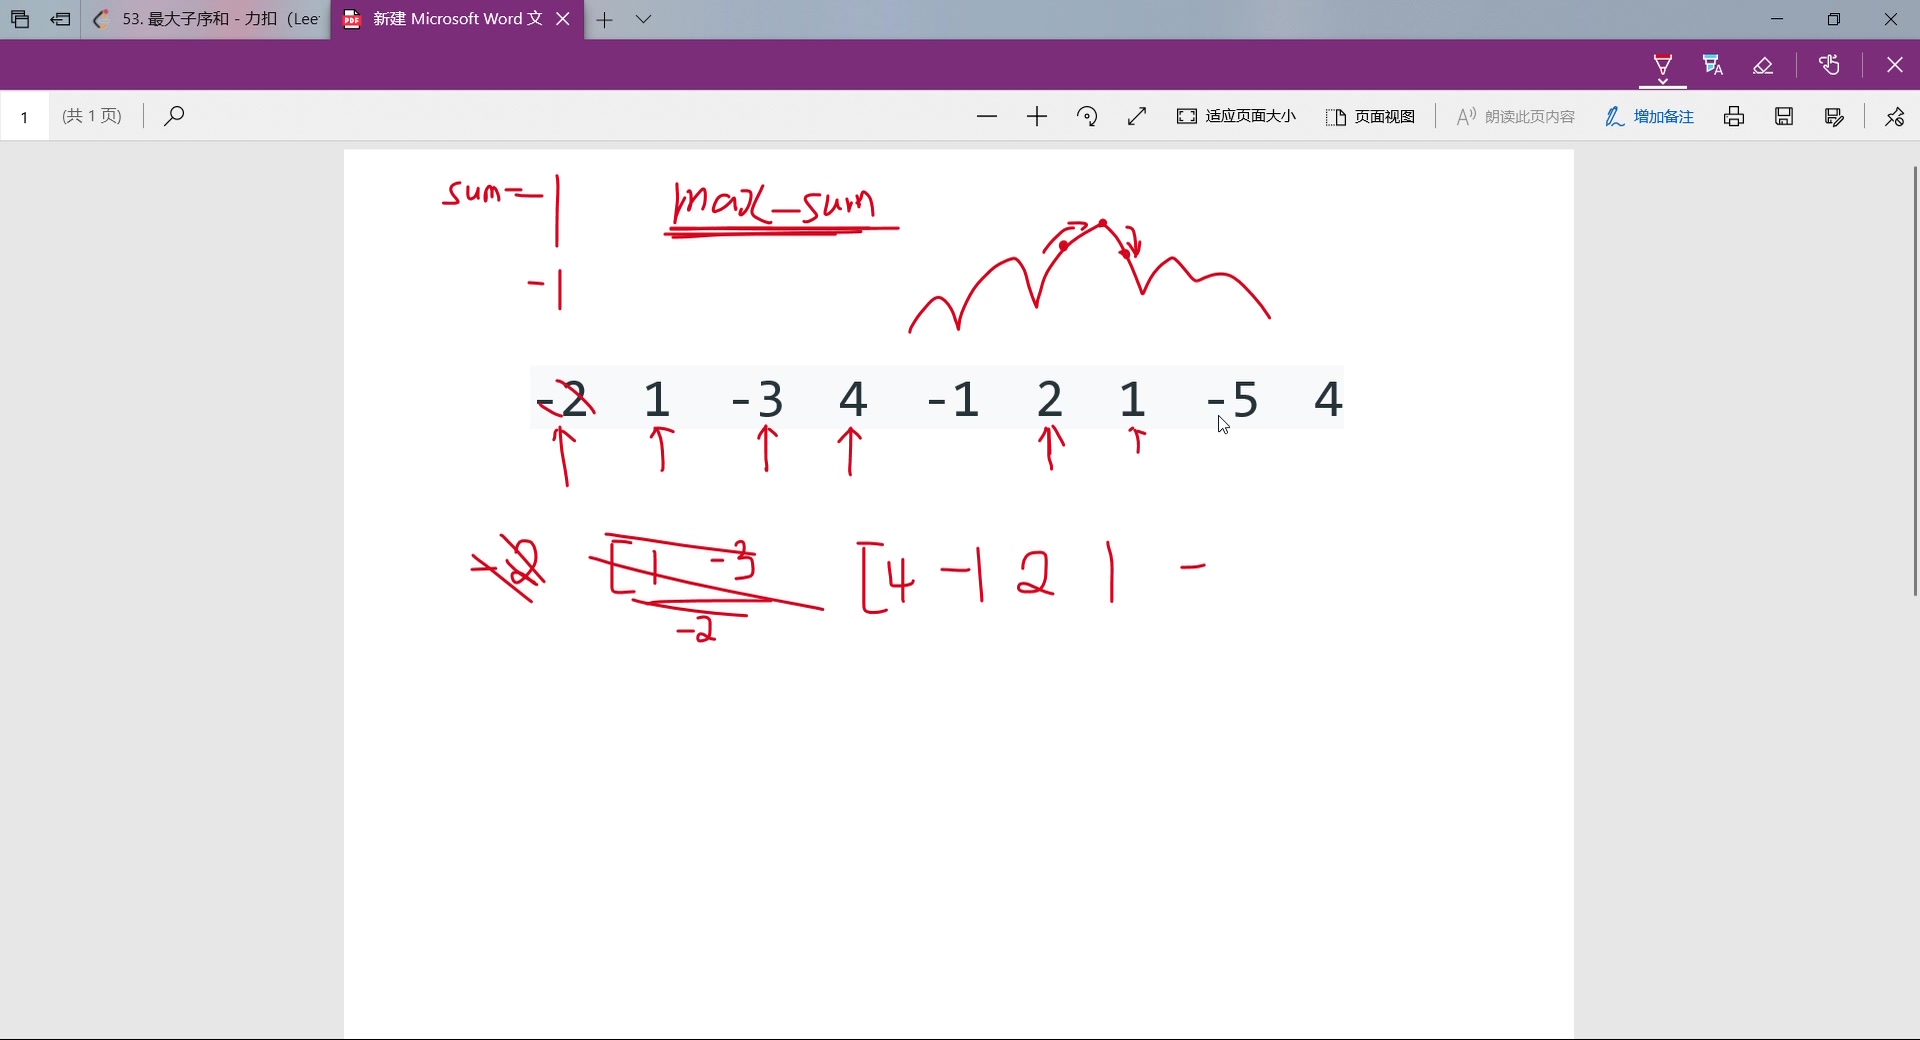 53. 最大子序和 - 力扣（Lee
新建 Microsoft Word 文
1
(共 1 页)
适应页面大小
页面视图
朗读此页内容
增加备注
sum=-1
max_sum
-1
-2 1 -3 4 -1 2 1 -5 4
-2 [1 -3 [4 -1 2 1 -
-2